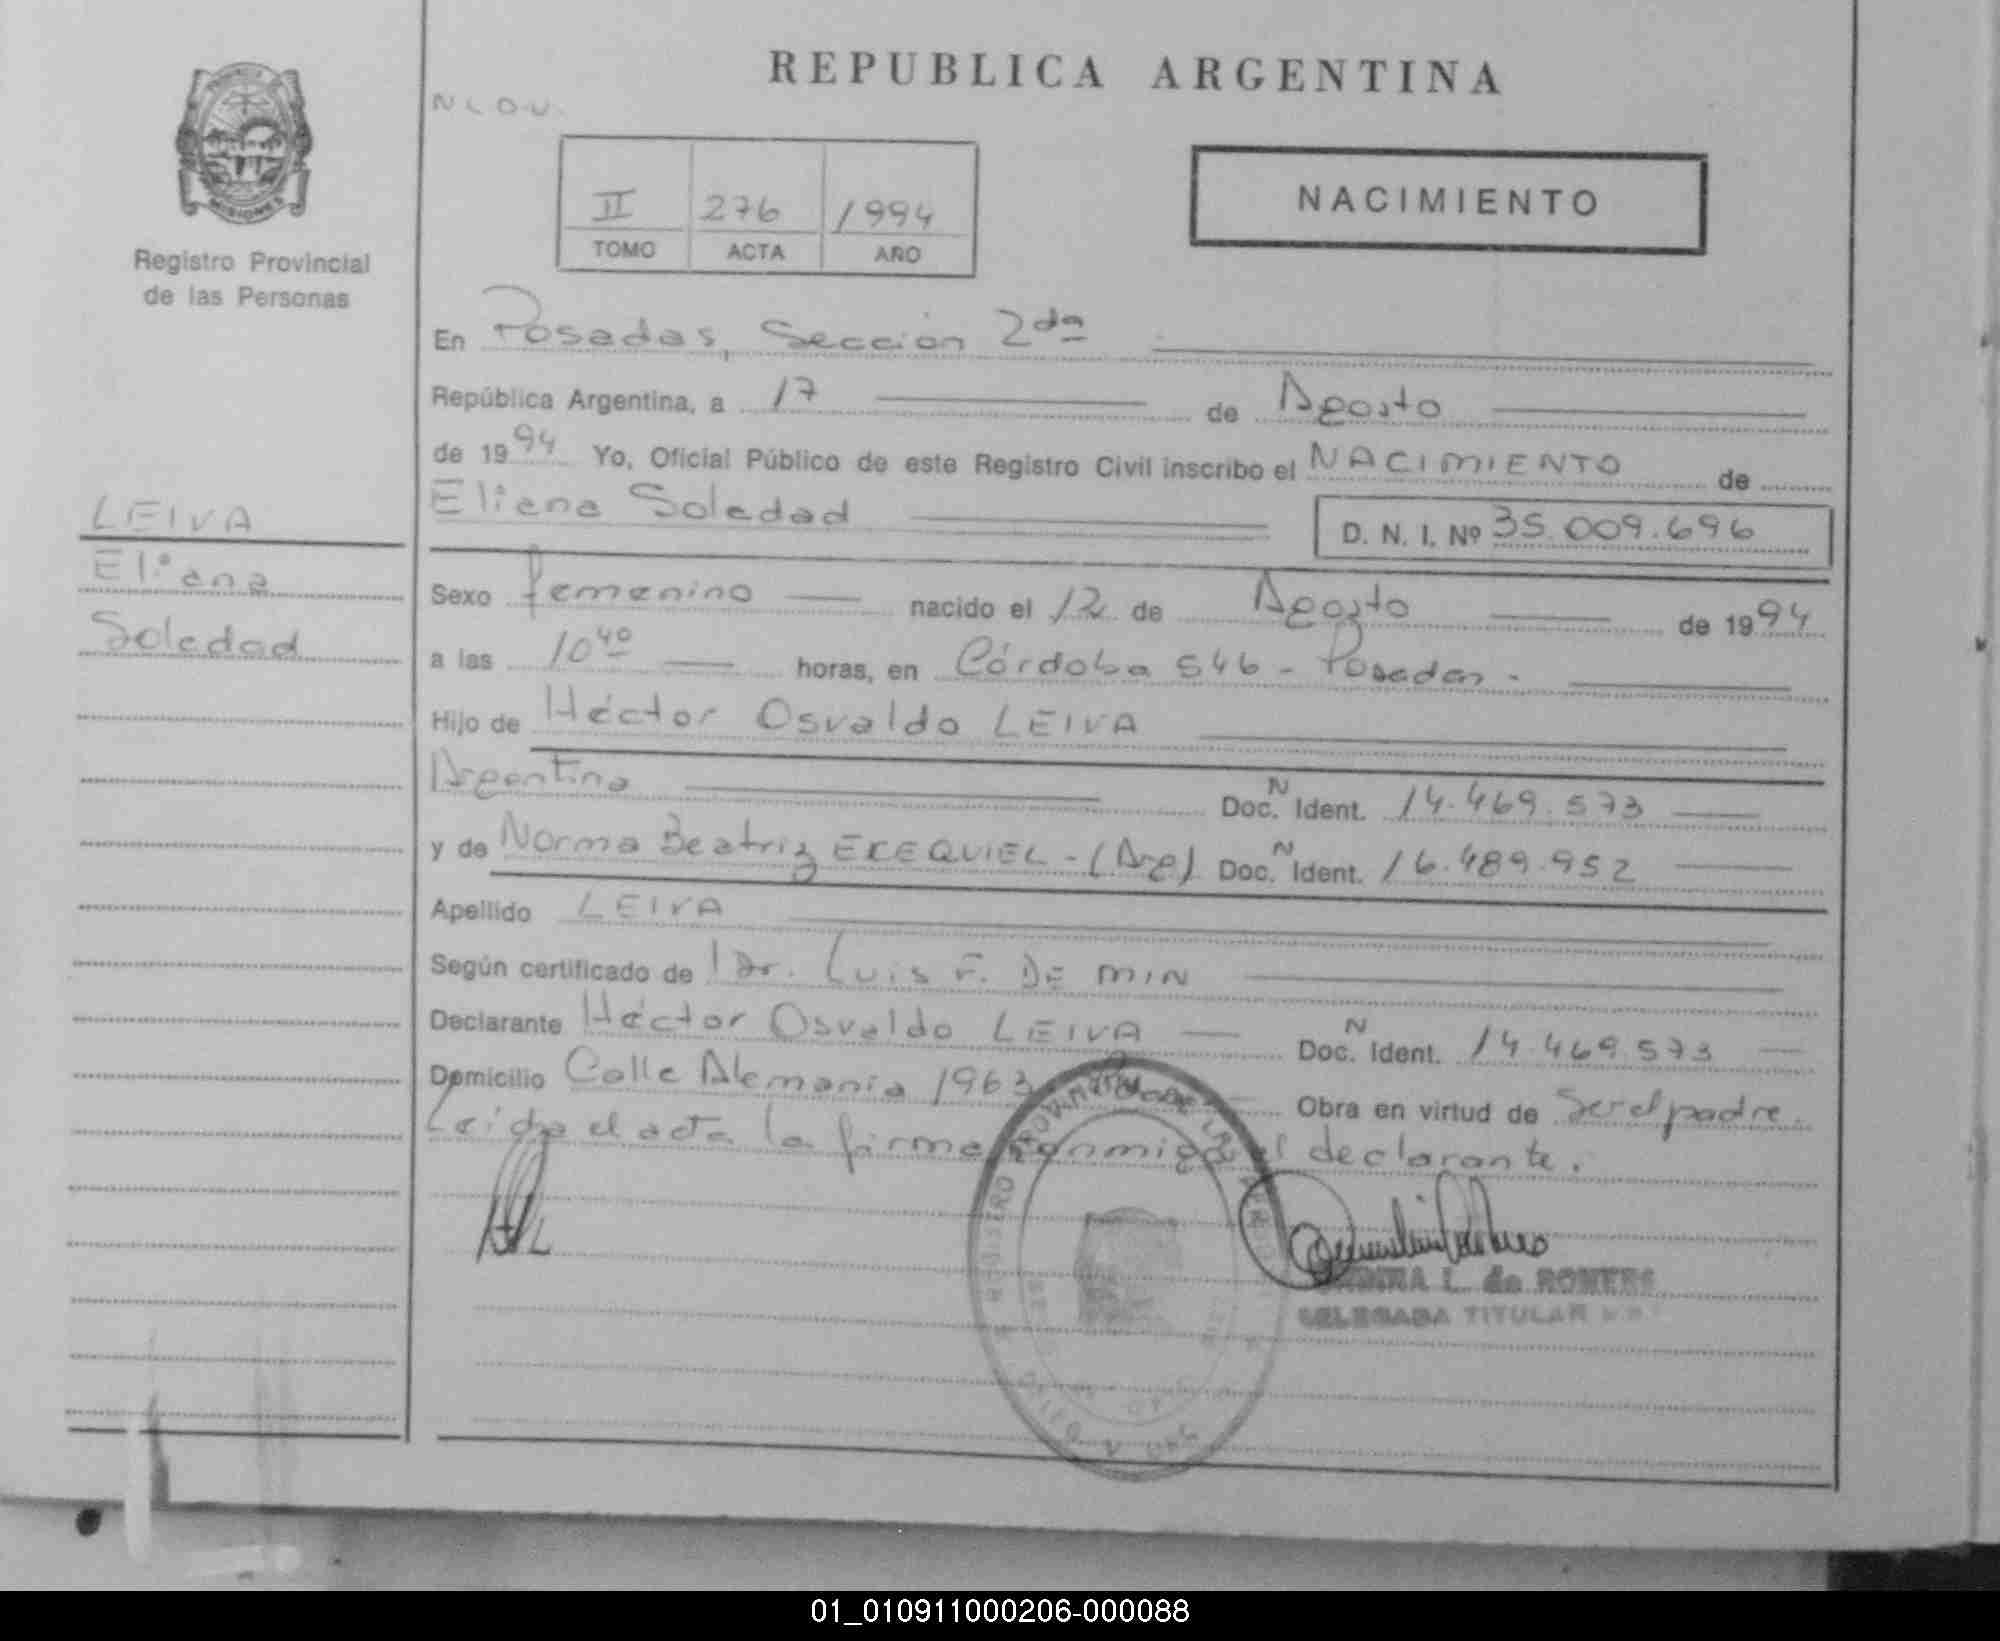 REPUBLICA ARGENTINA
MISIONES
Registro Provincial
de las Personas
II 276 1994
TOMO ACTA AÑO
NACIMIENTO
En Posadas, Sección 2da
República Argentina, a 17 de Agosto
de 1994 Yo, Oficial Público de este Registro Civil inscribo el NACIMIENTO de
Eliana Soledad D. N. I. Nº 35.009.696
LEIVA
Eliana
Soledad
Sexo femenino nacido el 12 de Agosto de 1994
a las 10 40 horas, en Córdoba 546 - Posadas -
Hijo de Héctor Osvaldo LEIVA
Argentina Doc. N Ident. 14.469.573
y de Norma Beatriz EXEQUIEL - (Arg) Doc. N Ident. 16.489.952
Apellido LEIVA
Según certificado de Dr. Luis F. DE MIN
Declarante Héctor Osvaldo LEIVA Doc. N Ident. 14.469.573
Domicilio Calle Alemania 1963 Obra en virtud de Ser el padre.
Leída el acta la firma conmigo el declarante.
L. de ROMERO
DELEGADA TITULAR
01_010911000206-000088